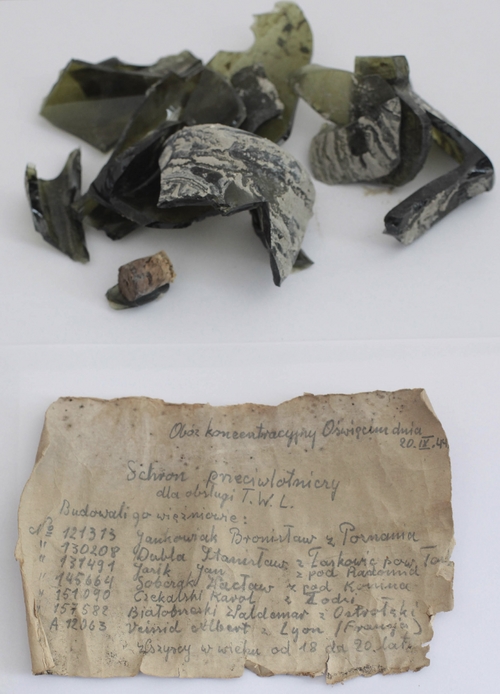 Obóz koncentracyjny Oświęcim dnia
20.IX.44
Schron przeciwlotniczy
dla obsługi T.W.L.
Budowali go więźniowie:
№ 121313 Jankowiak Bronisław z Poznania
" 130208 Dubla Stanisław z Łaskowic pow.
" 131491 Jasik Jan z pod Radomia
" 145664 Sobczak Wacław z pod Konina
" 151090 Czekalski Karol z Łodzi
" 157582 Białobrzeski Waldemar z Ostrołęki
A 12063 Veinid Albert z Lyon (Francja)
Wszyscy w wieku od 18 da 20. lat.